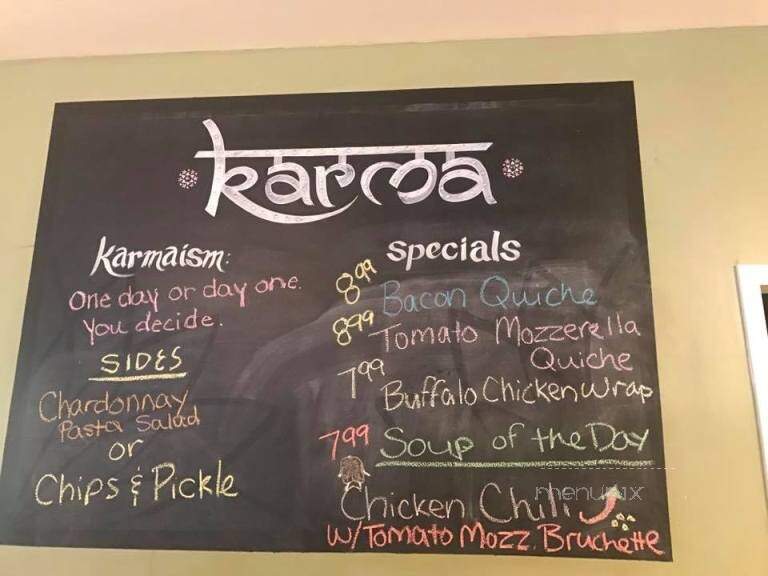 karma
karmaism:
One day or day one.
You decide.
SIDES
Chardonnay
Pasta Salad
or
Chips & Pickle
specials
8.99 Bacon Quiche
8.99 Tomato Mozzerella
Quiche
7.99 Buffalo Chicken Wrap
7.99 Soup of the Day
Chicken Chili
w/Tomato Mozz. Bruchette
menupix